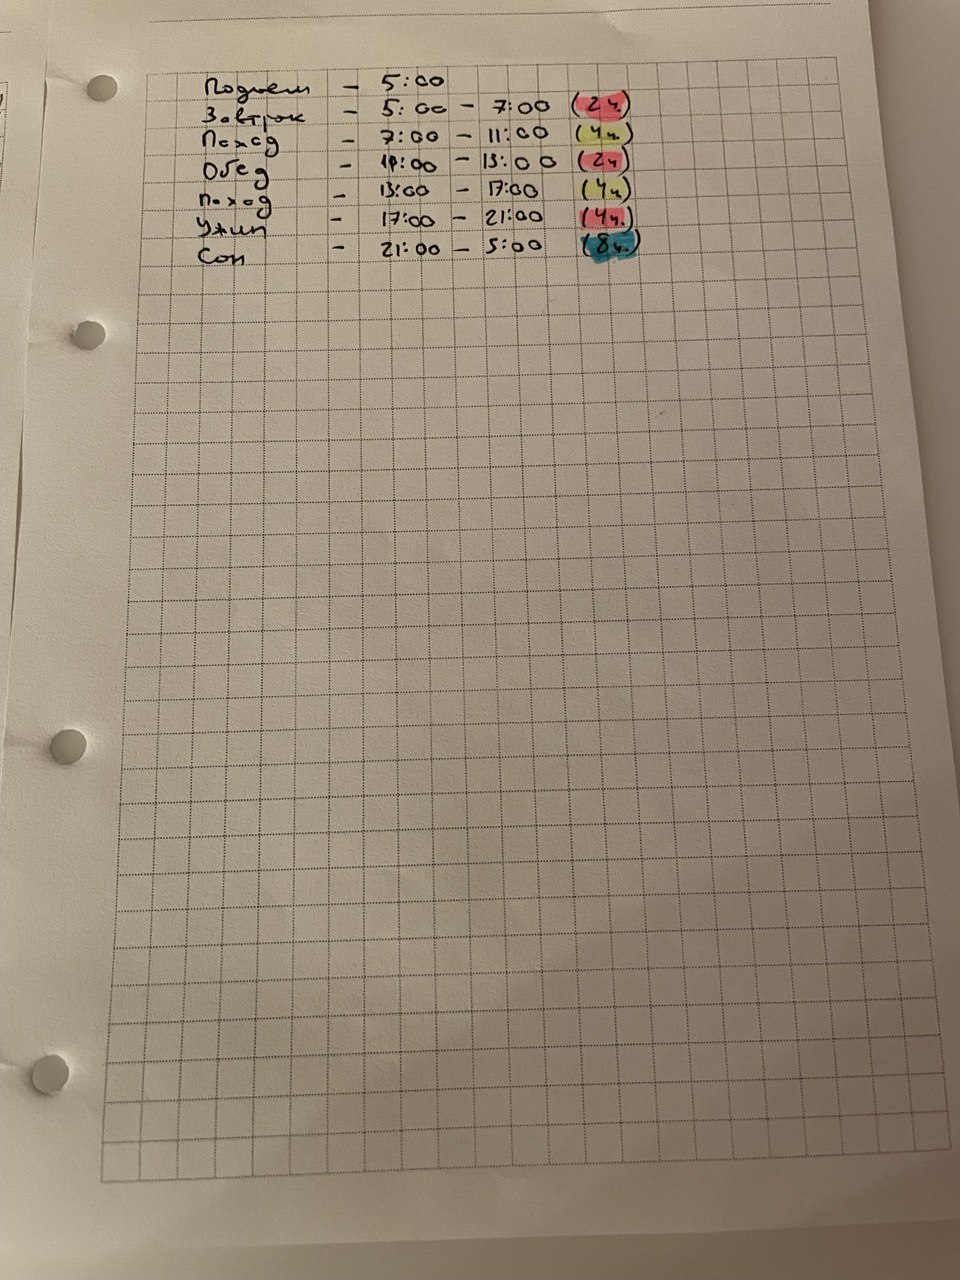 Подъем - 5:00
Завтрак - 5:00 - 7:00 (2ч.)
Поход - 7:00 - 11:00 (4ч.)
Обед - 11:00 - 13:00 (2ч)
Поход - 13:00 - 17:00 (4ч)
Ужин - 17:00 - 21:00 (4ч.)
Сон - 21:00 - 5:00 (8ч.)